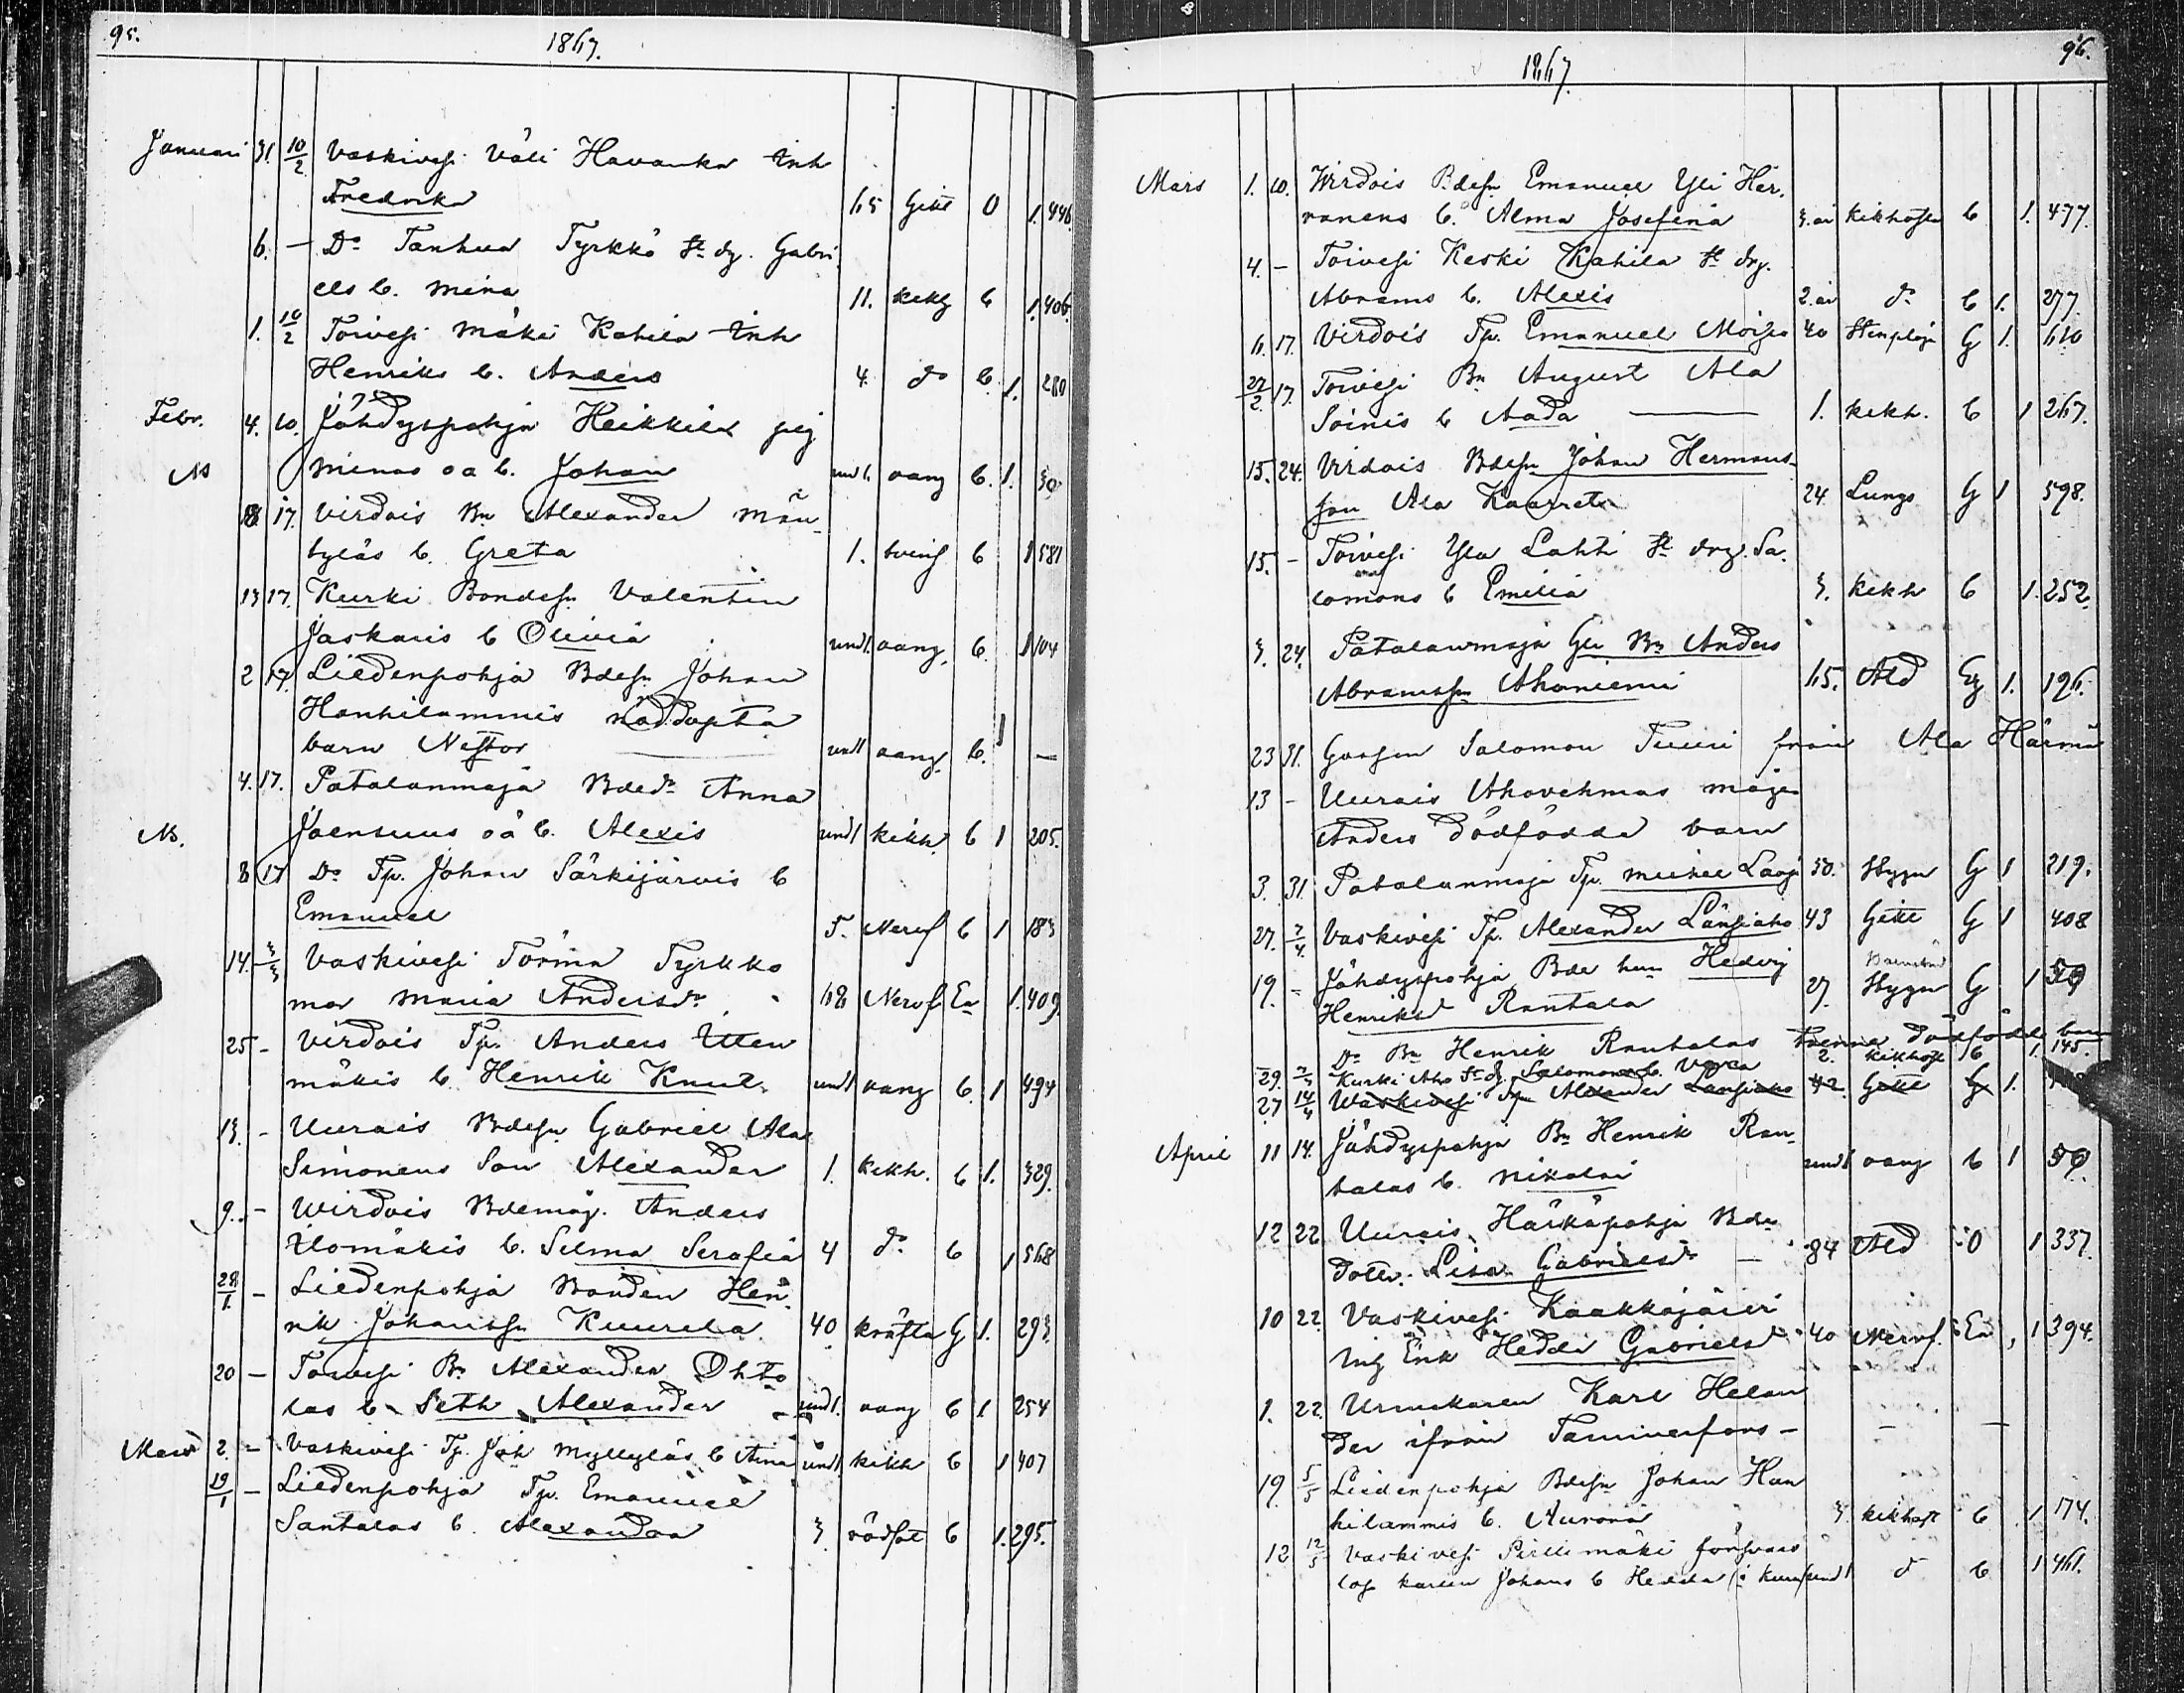 95.
1867.
Januari 31. 10/2 Vaskivesi Väli Havanka Inh
Fredrika 65 Gikt O 1. 446.
6. — Do Tanhua Tyrkkö St dg. Gabri
els b. Mina 11. kikh b 1. 406.
1. 10/2 Toivesi Mäki Kahila Inh
Henriks b. Anders 4. do b. 1. 280
Febr. 4. 10. Jähdyspohja Heikkilä pig
Minas oä b. Johan und 1. oang b. 1. 30
18 17. Virdois Bn Alexander Män
tyläs b. Greta 1. b 1 581
13 17. Kurki Bondesn Valentin
Jaskaris b Olivia und 1. oang. b. 1 104
2 17. Liedenpohja Bdesn Johan
Hanhilammis nöddöpta
barn Nestor und 1 oang. b. 1 —
4. 17. Patalanmaja Bdedr Anna
Joensuus oä b. Alexis und 1 kikh. b 1 205.
8 17 Do Tp. Johan Särkijärvis b
Emanuel 5. Nervf b 1 183
14. 3/3 Vaskivesi Törmä Tyrkkö
mor Maria Andersdr 68 Nervf Ea 1. 409.
25 - Virdois Tp. Anders Uten
mäkis b. Henrik Knut. und 1 oang b. 1 494
13. - Uurais Bdesn Gabriel Ala
Simonens Son Alexander 1. kikh. b 1. 329.
9. - Wirdois Bdemåg. Anders
Ilomäkis b. Selma Serafia 4 do b 1 568
28/1. - Liedenpohja Bonden Hen
rik Johanssn Kuurela 40 kräfta G 1. 293.
20 - Toivesi Bn Alexander Ohto
las b. Seth Alexander und 1. oang b 1. 254
Mars 2. - Vaskivesi Tp. Joh Myllyläs b Aina und 1 kikh b 1 407
19/1 - Liedenpohja Tp. Emanuel
Santalas b. Alexandra 3. rödsot b 1. 295.
96.
1867.
Mars 1. 10. Wirdois Bdesn Emanuel Yli Her
ranens b. Alma Josefina 3. år kikhosta b 1. 477.
4. - Toivesi Keski Kahila St drg.
Abrams b. Alexis 2. år do b 1. 277.
6. 17. Virdois Tp. Emanuel Moisio 40 G 1. 610
27/2. 17. Toivesi Bn August Ala
Soinis b Aada — 1. kikh. b 1 267.
15. 24. Virdois Bdesn Johan Hermans
son Ala Kaarret 24. Lungs G 1 598.
15. - Toivesi Yla Lahti St drg. Sa
lomons b Emilia 3. kikh b 1. 252.
3. 24. Patalanmaja Gle Bn Anders
Abramssn Ahoniemi 65. Ald Eg 1. 196.
23 31. Gossen Salomon Tuuri från Ala Härmä
13 - Uurais Ahovehmas måg
Anders dödfödda barn
3. 31. Patalanmaja Tp. Michel 50. Stygn G 1 219.
27. 7/4. Vaskivesi Tp. Alexander Länsiaho 43 Gikt G 1 408
19. - Jähdyspohja Bde hun Hedvig Barnsbörd
Henriksd Rantala 27. Stygn G 1 50
Do Bn Henrik Rantalas dödfödde barn
29. 7/4 Kurki Aho St dg. Salomons b. 2. kikhost b 1. 145.
27 14/4 Waskivesi Tp Alexander Länsiaho 42. Gikt G 1
April 11 14. Jähdyspohja Bn Henrik Ran
talas b. Nikolai und 1 oang b 1 50.
12 22 Uurais, Härkäpohja Bde
dotter. Lisa Gabrielsdr — 84 Ald O 1 337.
10 22. Vaskivesi Kaakkojärvi
Enk Hedda Gabrielsd 40 Nervf. Ea 1 394.
1. 22. Urmakaren Karl Helan
der ifrån Tammerfors — — —
19. 5/5 Liedenpohja Bdesn Johan Han
hilammis b. Aurora 3 kikhost b 1 174.
12 12/5 Vaskivesi Pirttimäki försvars
lös karlen Johans b Hedda (i und 1 do b 1 461.